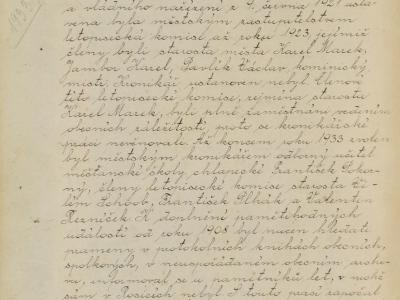 a vládního nařízení z 9. června 1921 usta-
vena byla městským zastupitelstvem
letopisecká komise až roku 1923, jejímiž
členy byli starosta města Karel Marek,
Jambor Karel, Pavlík Václav, kominický
mistr. Kronikář ustanoven nebyl. Členové
této letopisecké komise, zejména starosta
Karel Marek, byli plně zaměstnáni vedením
obecních záležitostí, proto se kronikářské
práci nevěnovali. Až koncem roku 1933 zvolen
byl městským kronikářem odborný učitel
měšťanské školy chlapecké František Soko-
ný, členy letopisecké komise starosta Vi-
lém Schoob, František Plhák a Valentin
Řezníček. K doplnění pamětihodných
událostí od roku 1908 byl nucen hledati
prameny v protokolních knihách obecních,
spolkových, v neuspořádaném obecním archi-
vu, informoval se u pamětníků let, v nichž
sám v Rosicích nebyl. S touto prací započal